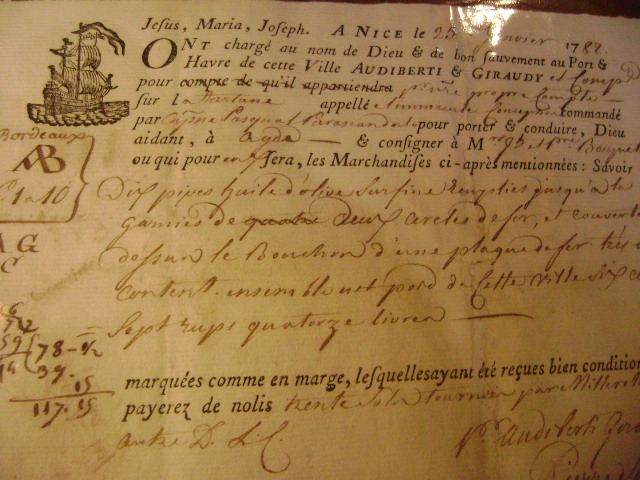 Jesus, Maria, Joseph. A NICE le 25 Janvier 1782.
ONT chargé au nom de Dieu & de bon sauvement au Port &
Havre de cette Ville AUDIBERTI & GIRAUDY et Comp.
pour compte de qu'il appartiendra propre Compte
sur la Tartane appellé l'immaculé Conception commandé
par pour porter & conduire, Dieu
aidant, à Agde & consigner à M Bouquet
ou qui pour eux sera, les Marchandises ci-après mentionnées: Savoir
Bordeaux
AB
N.° 1 a 10
AG
C
Dix pipes huile d'olive surfine remplies jusqu'a la
garnies de quatre deux cercles de fer, et couvert
dessus le Bouchon d'une plaque de fer
content. ensemble net poid de Cette Ville Six
Sept rups quatorze livres
78-1/2
39.15
117.15
marquées comme en marge, lesquelles ayant été reçues bien condition
payerez de nolis trente sols tournois par Millerolle
autre D. L C.
p. Audiberti